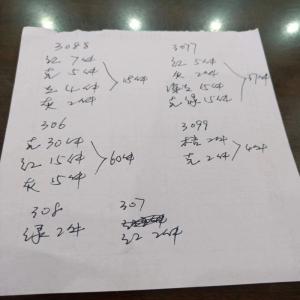 3088
红 7件
克 5件
兰 4件
灰 2件
18件
3077
红 5件
灰 2件
15件
克绿 15件
37件
306
克 30件
红 15件
灰 15件
60件
3099
桔 2件
克 2件
4件
308
绿 2件
307
红 2件